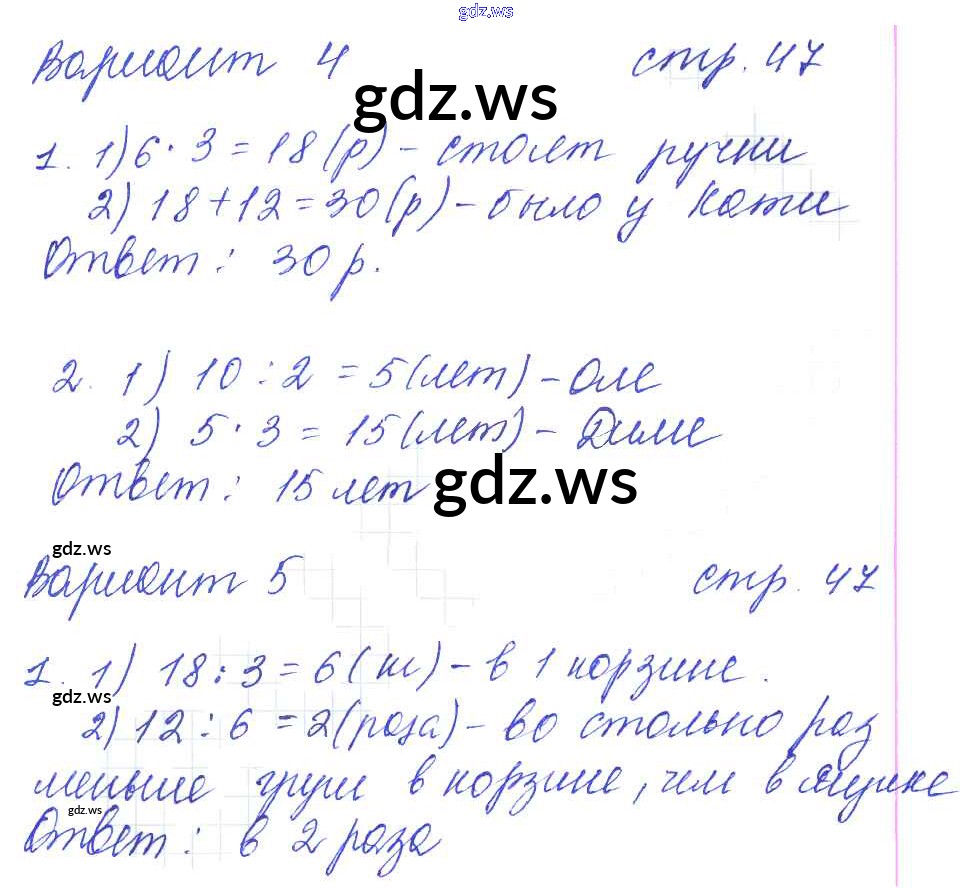 gdz.ws
Вариант 4 стр. 47
gdz.ws
1. 1) 6 · 3 = 18 (р) - стоят ручки
2) 18 + 12 = 30 (р) - было у Кати
Ответ: 30 р.
2. 1) 10 : 2 = 5 (лет) - Оле
2) 5 · 3 = 15 (лет) - Диме
Ответ: 15 лет
gdz.ws
gdz.ws
Вариант 5 стр. 47
1. 1) 18 : 3 = 6 (кг) - в 1 корзине.
gdz.ws
2) 12 : 6 = 2 (раза) - во столько раз
меньше груш в корзине, чем в ящике
gdz.ws
Ответ: в 2 раза